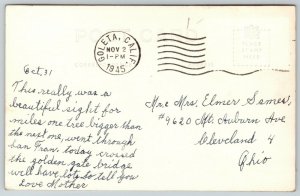 POST CARD
GOLETA, CALIF.
NOV 2
1-PM
1945
Oct, 31
This really was a
beautiful sight for
miles one tree bigger than
the next one, went through
San Fran. today crossed
the golden gate bridge
will have lots to tell you
Love Mother
Mr & Mrs. Elmer Sames,
#9620 Mt Auburn Ave
Cleveland 4
Ohio